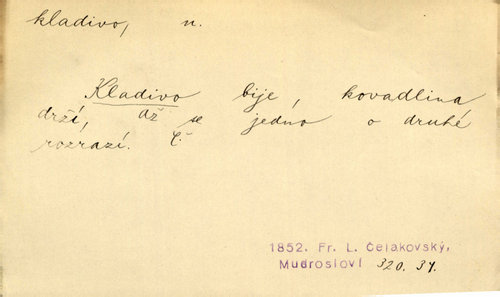 kladivo, n.
Kladivo bije, kovadlina
drží, až se jedno o druhé
rozrazí. Č.
1852. Fr. L. Čelakovský,
Mudrosloví 320. 34.